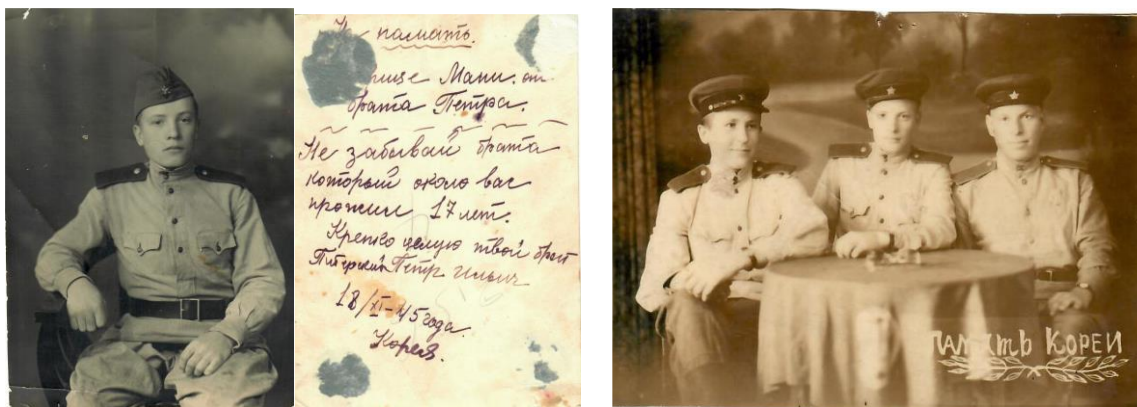 На память.
Мани. от
брата Петра.
Не забывай брата
который около вас
прожил 17 лет.
Крепко целую твой брат
Петр Ильич
18/XI-45 года.
Корея.
ПАМЯТЬ КОРЕИ